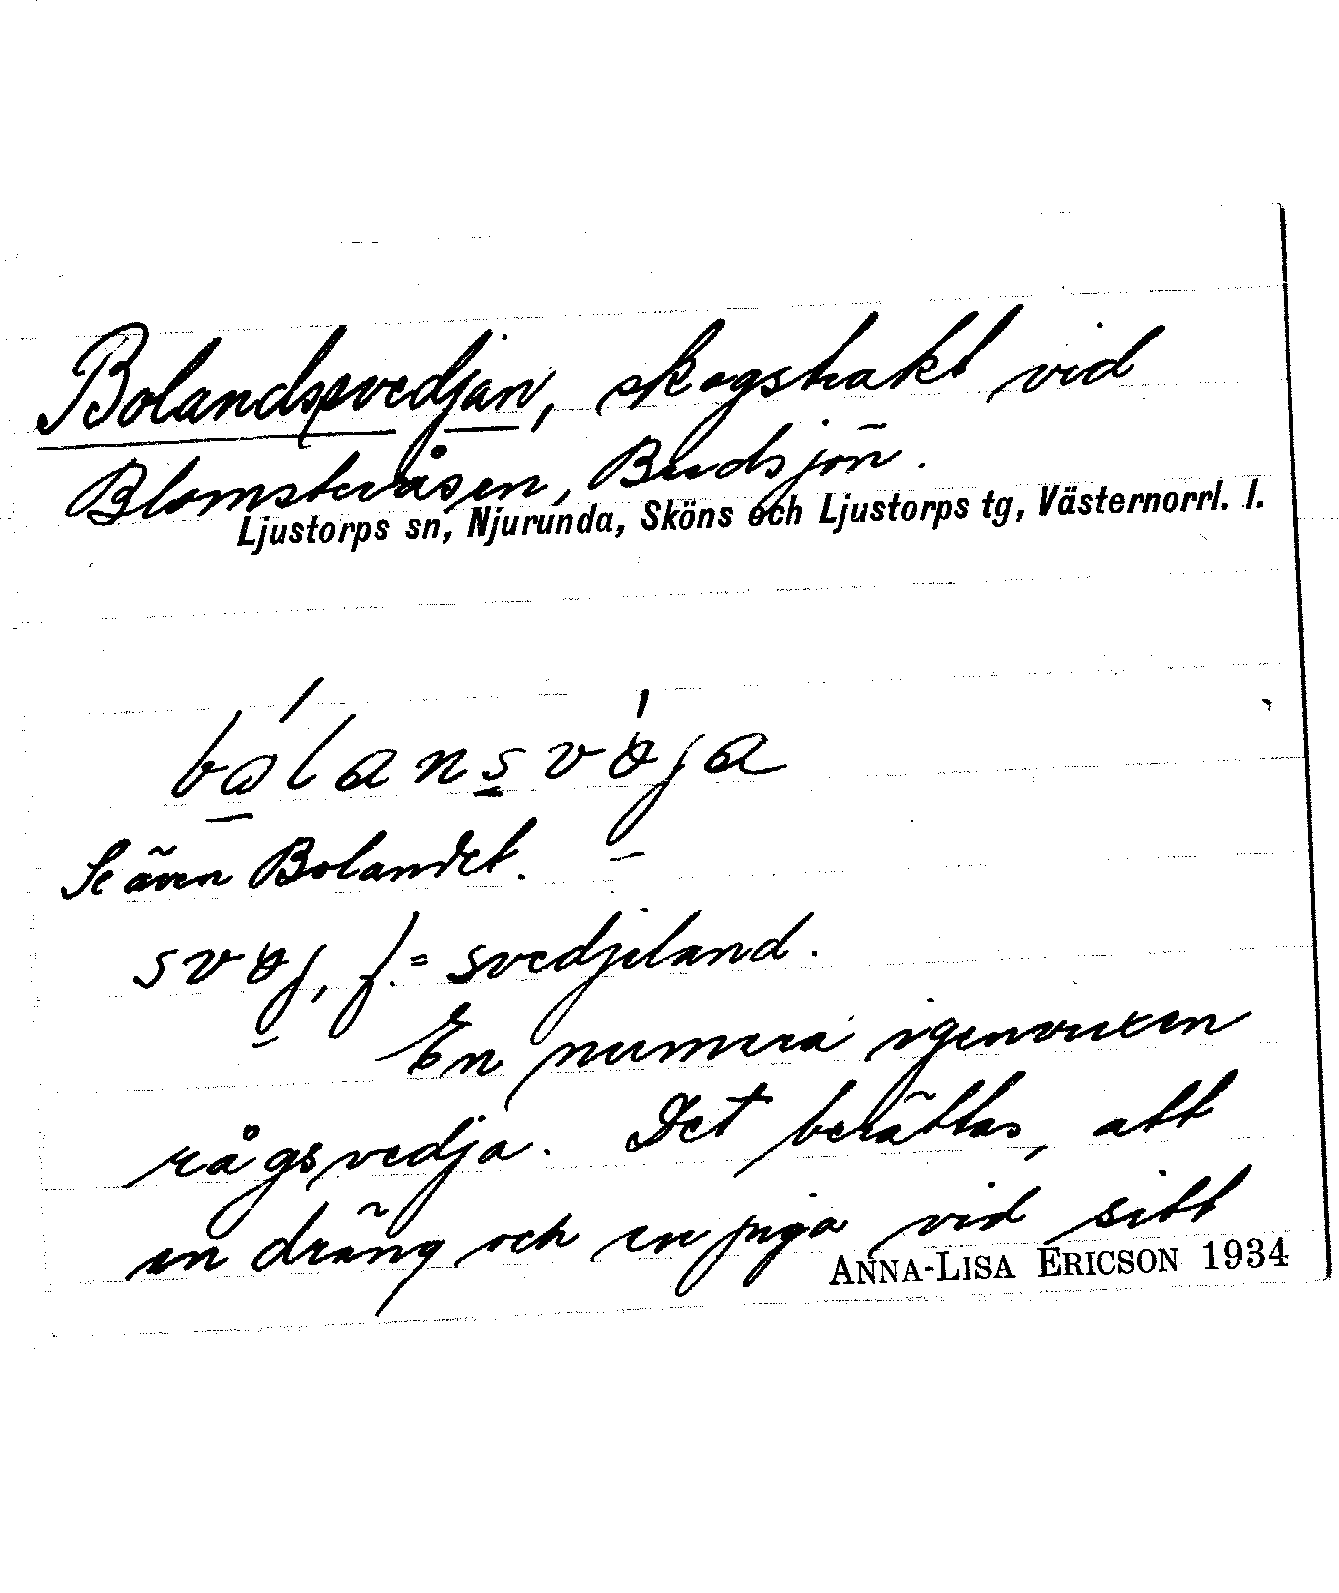 Bolandssvedjan, skogstrakt vid
Blomsteråsen, Bredsjön.
Ljustorps sn, Njurunda, Sköns och Ljustorps tg, Västernorrl. l.
Se även Bolandet.
f. = svedjeland.
En numera igenvuxen
rågsvedja. Det berättas, att
en dräng och en piga vid sitt
ANNA-LISA ERICSON 1934